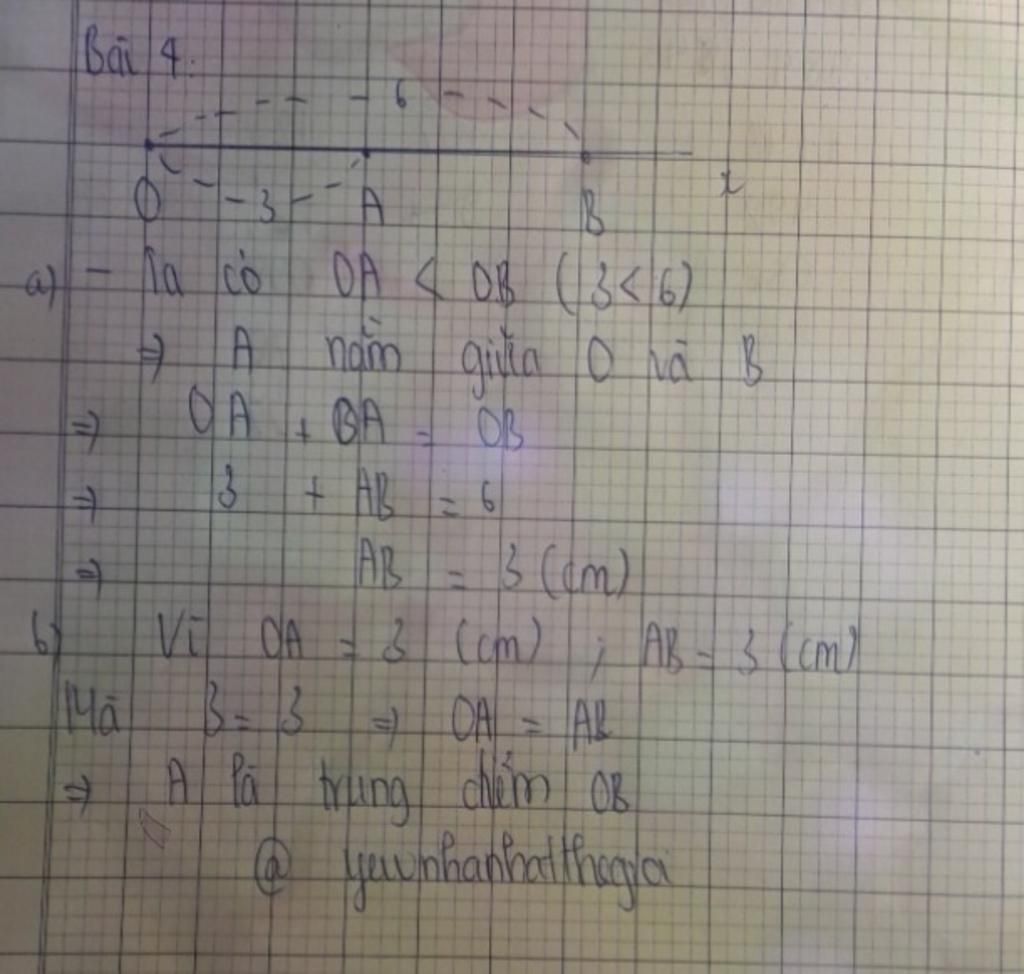 Bài 4.
6
O 3 A B x
a) - Ta có OA < OB (3 < 6)
⇒ A nằm giữa O và B
⇒ OA + BA = OB
⇒ 3 + AB = 6
⇒ AB = 3 (cm)
b) Vì OA = 3 (cm) ; AB = 3 (cm)
Mà 3 = 3 ⇒ OA = AB
⇒ A là trung điểm OB